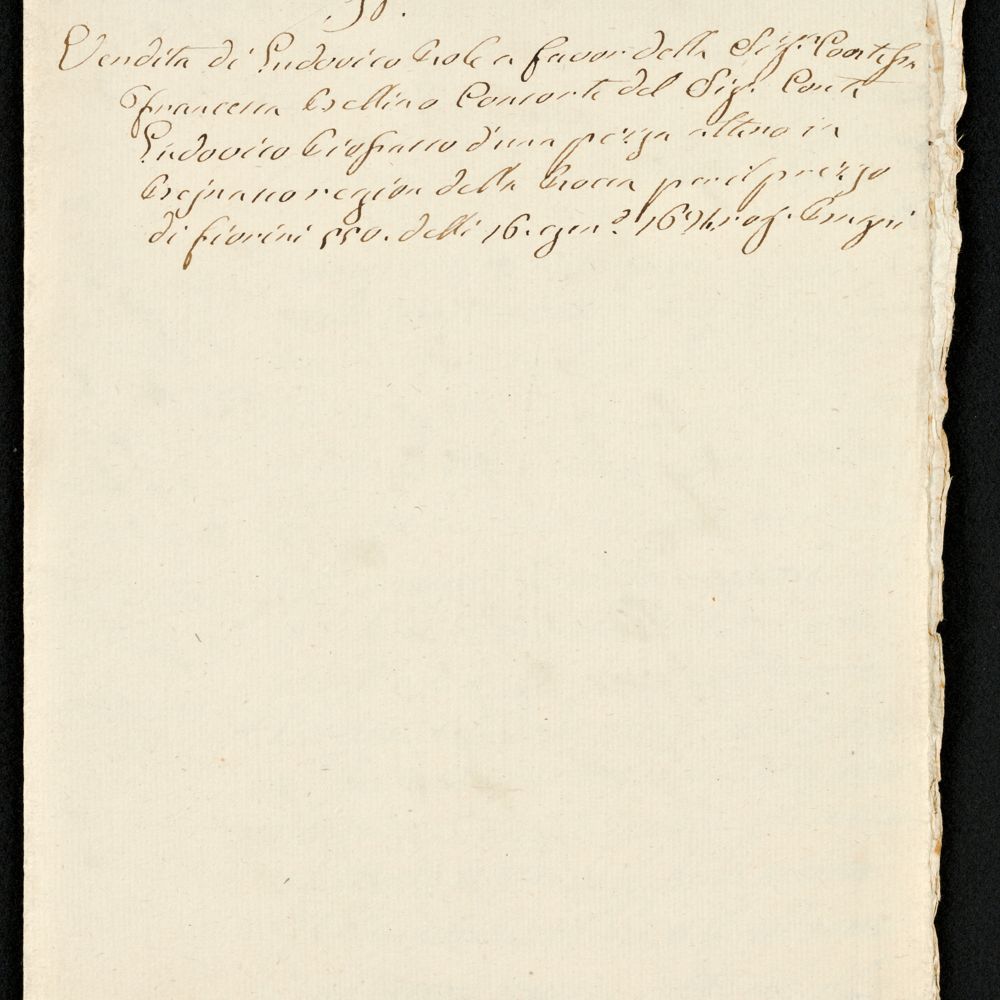 Vendita di Ludovico Crole a favor della Sig.ra Contessa
Francesca Avellino Consorte del Sig. Conte
Ludovico d'una pezza alteno in
region della Crocia per il prezzo
di fiorini 550. delli 16. gen.o 1694. rog.